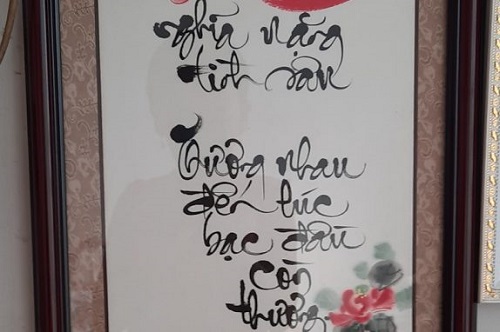 nghĩa nặng
tình sâu
Thương nhau
đến lúc
bạc đầu
còn
thương